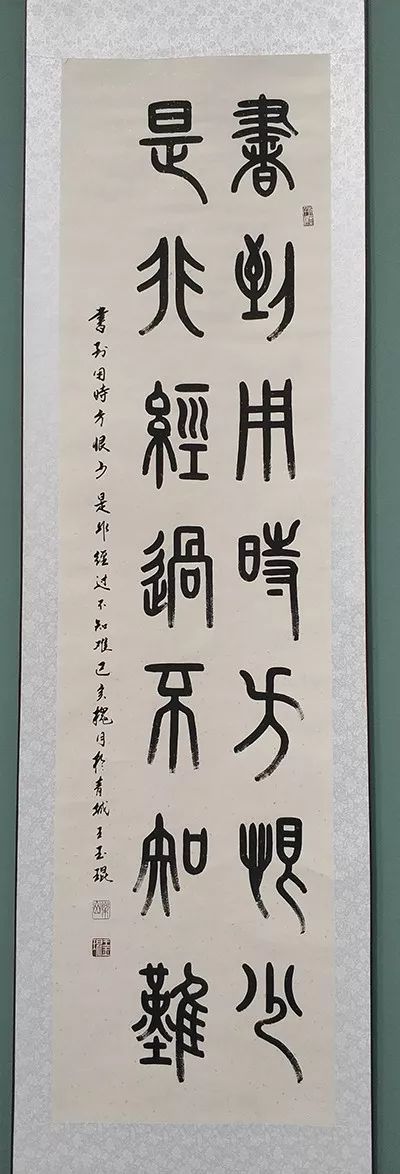 書到用時方恨少
是非經過不知難
書到用時方恨少是非經过不知难己亥槐月於青城王玉琨